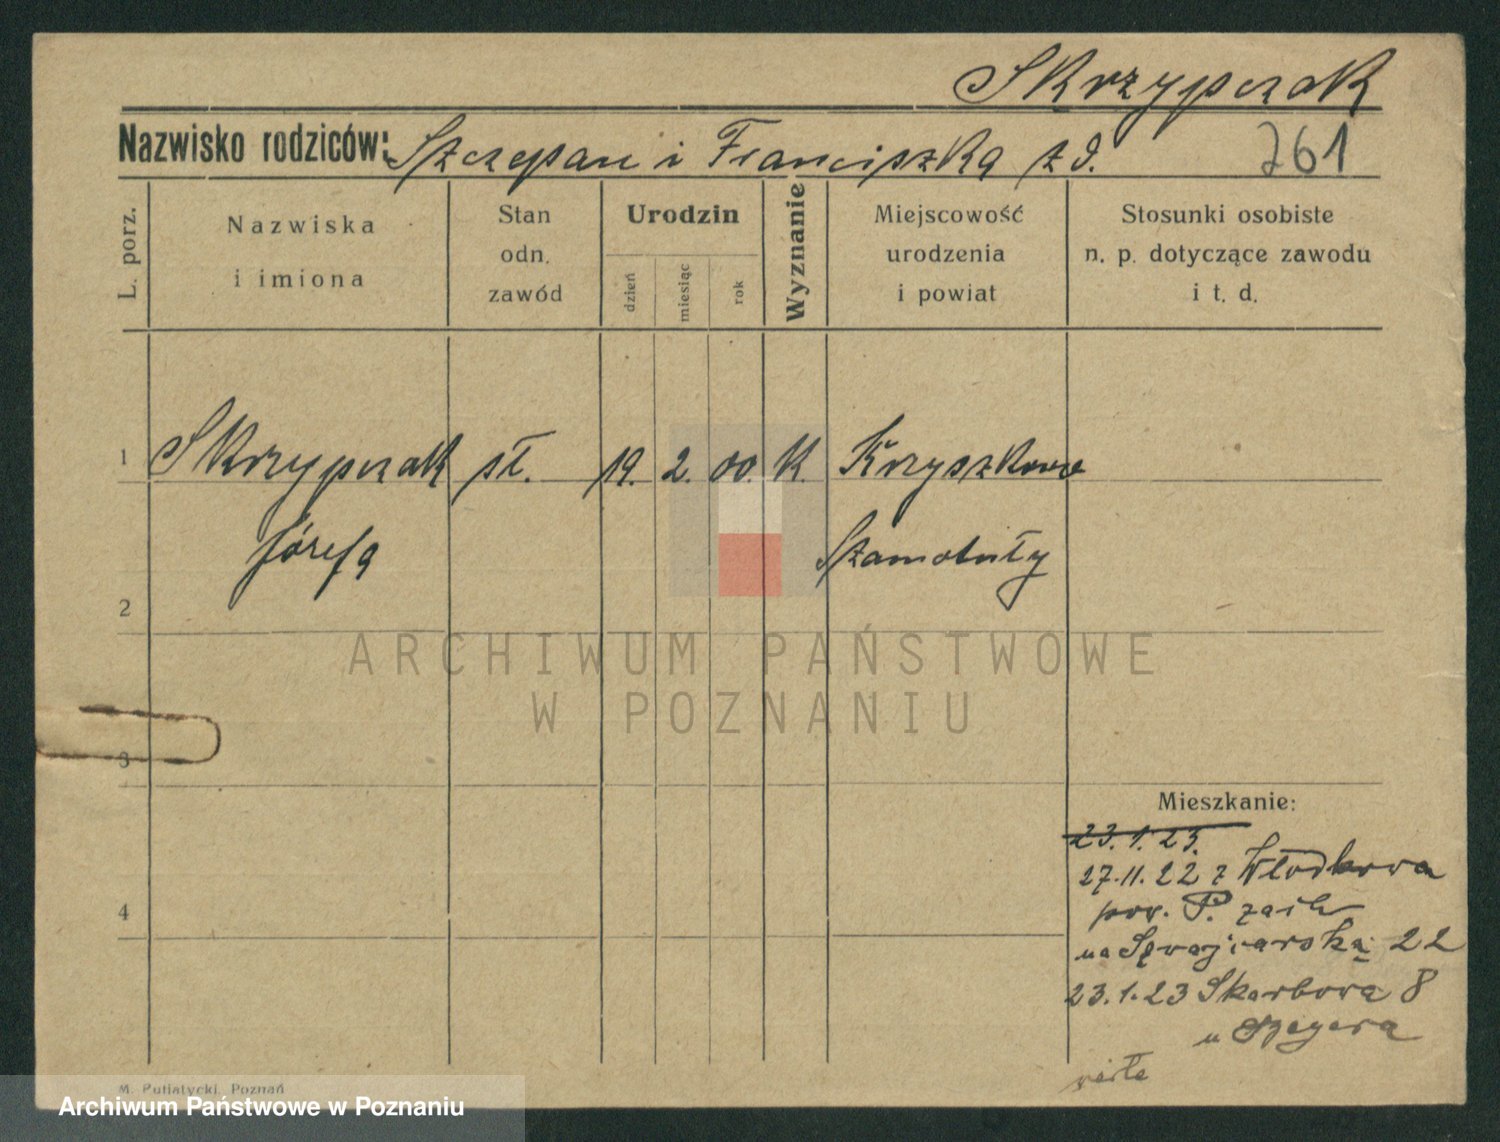 Skrzypczak
Nazwisko rodziców: Szczepan i Franciszka z d.
761
L. porz.
Nazwiska
i imiona
Stan
odn.
zawód
Urodzin
dzień
miesiąc
rok
Wyznanie
Miejscowość
urodzenia
i powiat
Stosunki osobiste
n. p. dotyczące zawodu
i t. d.
1 Skrzypczak sł. 19. 2. 00. K. Krzyszkowo
Józefa Szamotuły
2
3
4
Mieszkanie:
23.1.23.
27.11.22 z Włodkowa
pow. P.
na 22
23.1.23 Skarbowa 8
u
M. Putiatycki, Poznań
ARCHIWUM PAŃSTWOWE
W POZNANIU
Archiwum Państwowe w Poznaniu